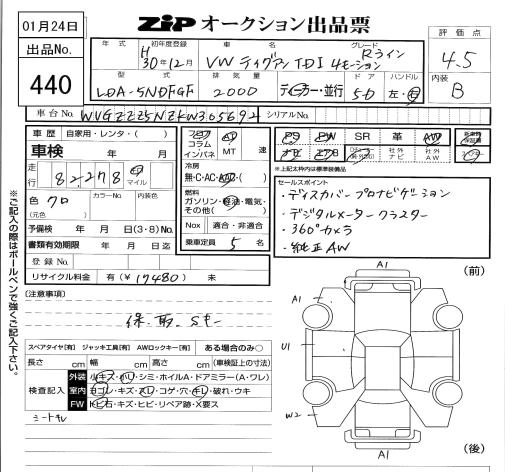 01月24日
出品No.
440
ZIP オークション出品票
評価点
4.5
内装
B
年式 初年度登録 車名 グレード
H 30年12月 VW ティグアン TDI 4モーション Rライン
型式 排気量 ドア ハンドル
LDA-5NDFGF 2000 ディーラー・並行 5D 左・右
車台No. WVGZZZ5NZKW305692 シリアルNo.
車歴 自家用・レンタ( )
車検 年 月
走行 82278 km マイル
色 クロ カラーNo. 内装色
(元色)
予備検 年 月 日(3・8)No.
書類有効期限 年 月 日迄
登録No.
リサイクル料金 有(¥17480) 未
フロア AT 速
コラム
インパネ MT
冷房
無・C・AC・AAC・( )
燃料
ガソリン・軽油・電気・
その他( )
Nox 適合・非適合
乗車定員 5 名
PS PW SR 革 AW
ナビ エアB 社外ナビ 社外AW
*上記太枠内は標準装備品
セールスポイント
・ディスカバープロナビゲーション
・デジタルメータークラスター
・360°カメラ
・純正AW
※ご記入の際はボールペンで強くご記入下さい。
[注意事項]
保、取、Sキー
スペアタイヤ[有] ジャッキ工具[有] AWロックキー[有] ある場合のみ○
長さ cm 幅 cm 高さ cm (車検証上の寸法)
検査記入
外装 小キズ・凹・シミ・ホイルA・ドアミラー(A・ワレ)
室内 ヨゴレ・キズ・スレ・コゲ・穴・キレ・破れ・ウキ
FW トビ石・キズ・ヒビ・リペア跡・X要ス
シートキレ
(前)
A1
A1
U1
W2
A1
(後)